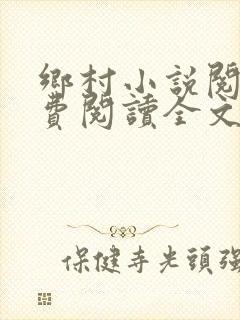 鄉村小說閱
費閱讀全文
保健寺光頭強